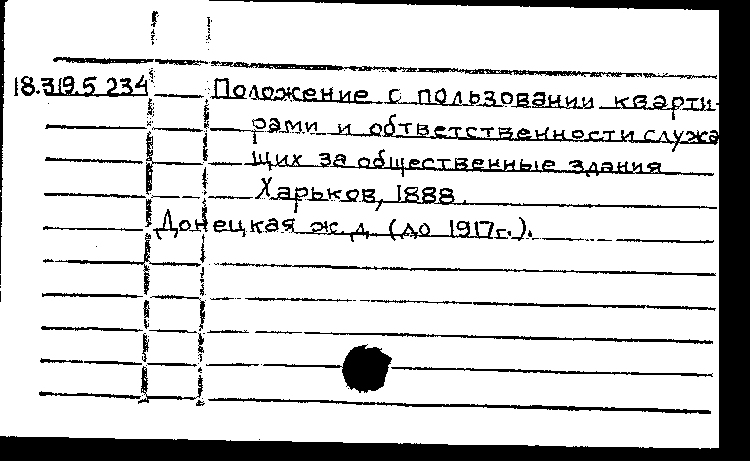 18.319.5.234 Положение о пользовании кварти-
рами и обтветственности служа
щих за общественные здания
Харьков, 1888.
Донецкая ж.д. (до 1917г.).